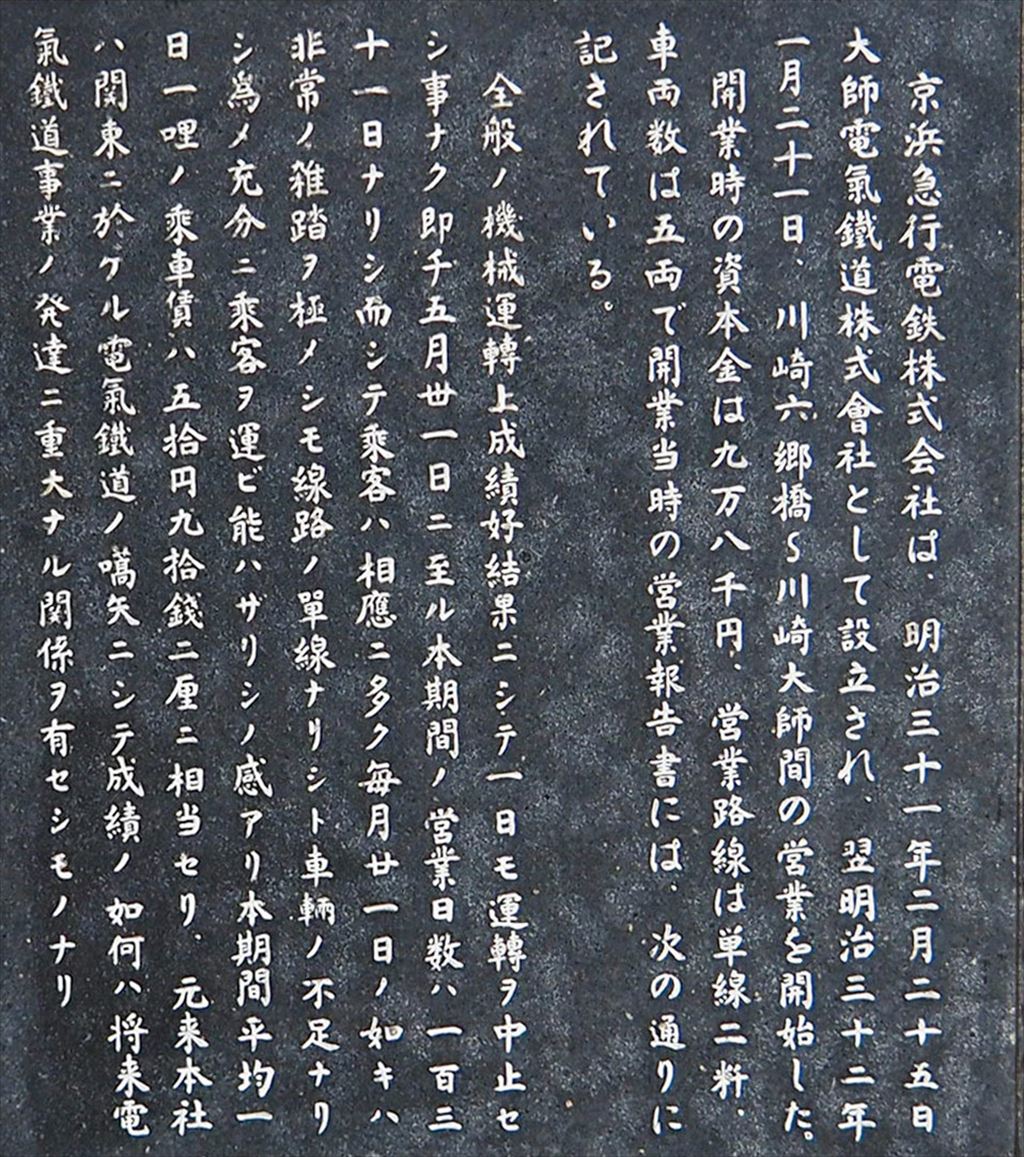 京浜急行電鉄株式会社は、明治三十一年二月二十五日
大師電氣鐵道株式會社として設立され、翌明治三十二年
一月二十一日、川崎六郷橋〜川崎大師間の営業を開始した。
開業時の資本金は九万八千円、営業路線は単線二粁、
車両数は五両で開業当時の営業報告書には、次の通りに
記されている。
全般ノ機械運轉上成績好結果ニシテ一日モ運轉ヲ中止セ
シ事ナク即チ五月丗一日ニ至ル本期間ノ営業日数ハ一百三
十一日ナリシ而シテ乘客ハ相應ニ多ク毎月廿一日ノ如キハ
非常ノ雑踏ヲ極メシモ線路ノ單線ナリシト車輌ノ不足ナリ
シ為メ充分ニ乘客ヲ運ビ能ハザリシノ感アリ本期間平均一
日一哩ノ乘車賃ハ五拾円九拾錢二厘ニ相当セリ、元来本社
ハ関東ニ於ケル電氣鐵道ノ嚆矢ニシテ成績ノ如何ハ将来電
氣鐵道事業ノ発達ニ重大ナル関係ヲ有セシモノナリ